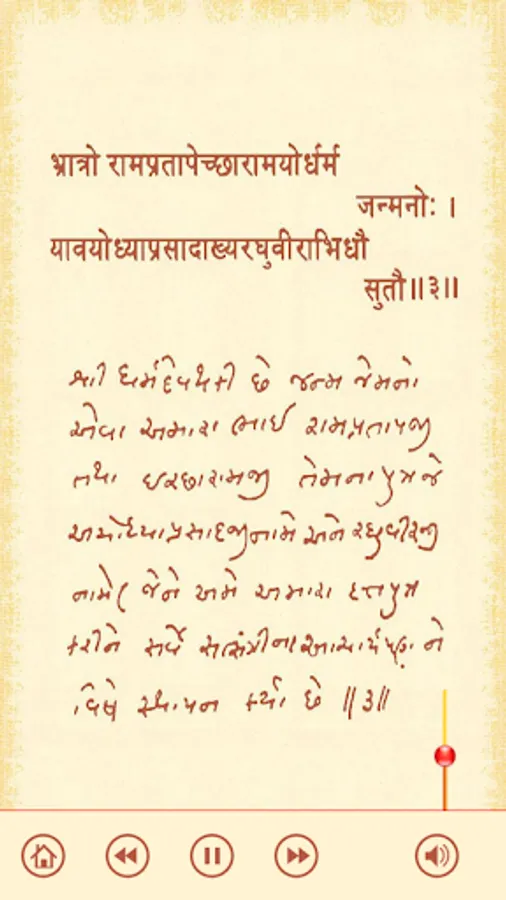 भ्रात्रो रामप्रतापेच्छारामयोर्धर्म
जन्मनोः ।
यावयोध्याप्रसादाख्यरघुवीराभिधौ
सुतौ॥३॥
श्री धर्मदेवथकी છે જન્મ જેમનો
એવા અમારા ભાઈ રામપ્રતાપજી
તથા ઇચ્છારામજી તેમના પુત્ર જે
અયોધ્યાપ્રસાદજી નામે અને રઘુવીરજી
નામે( જેને અમે અમારા દત્તપુત્ર
કરીને સર્વે સત્સંગીના આચાર્યપણાને
વિષે સ્થાપન કર્યા છે ॥૩॥